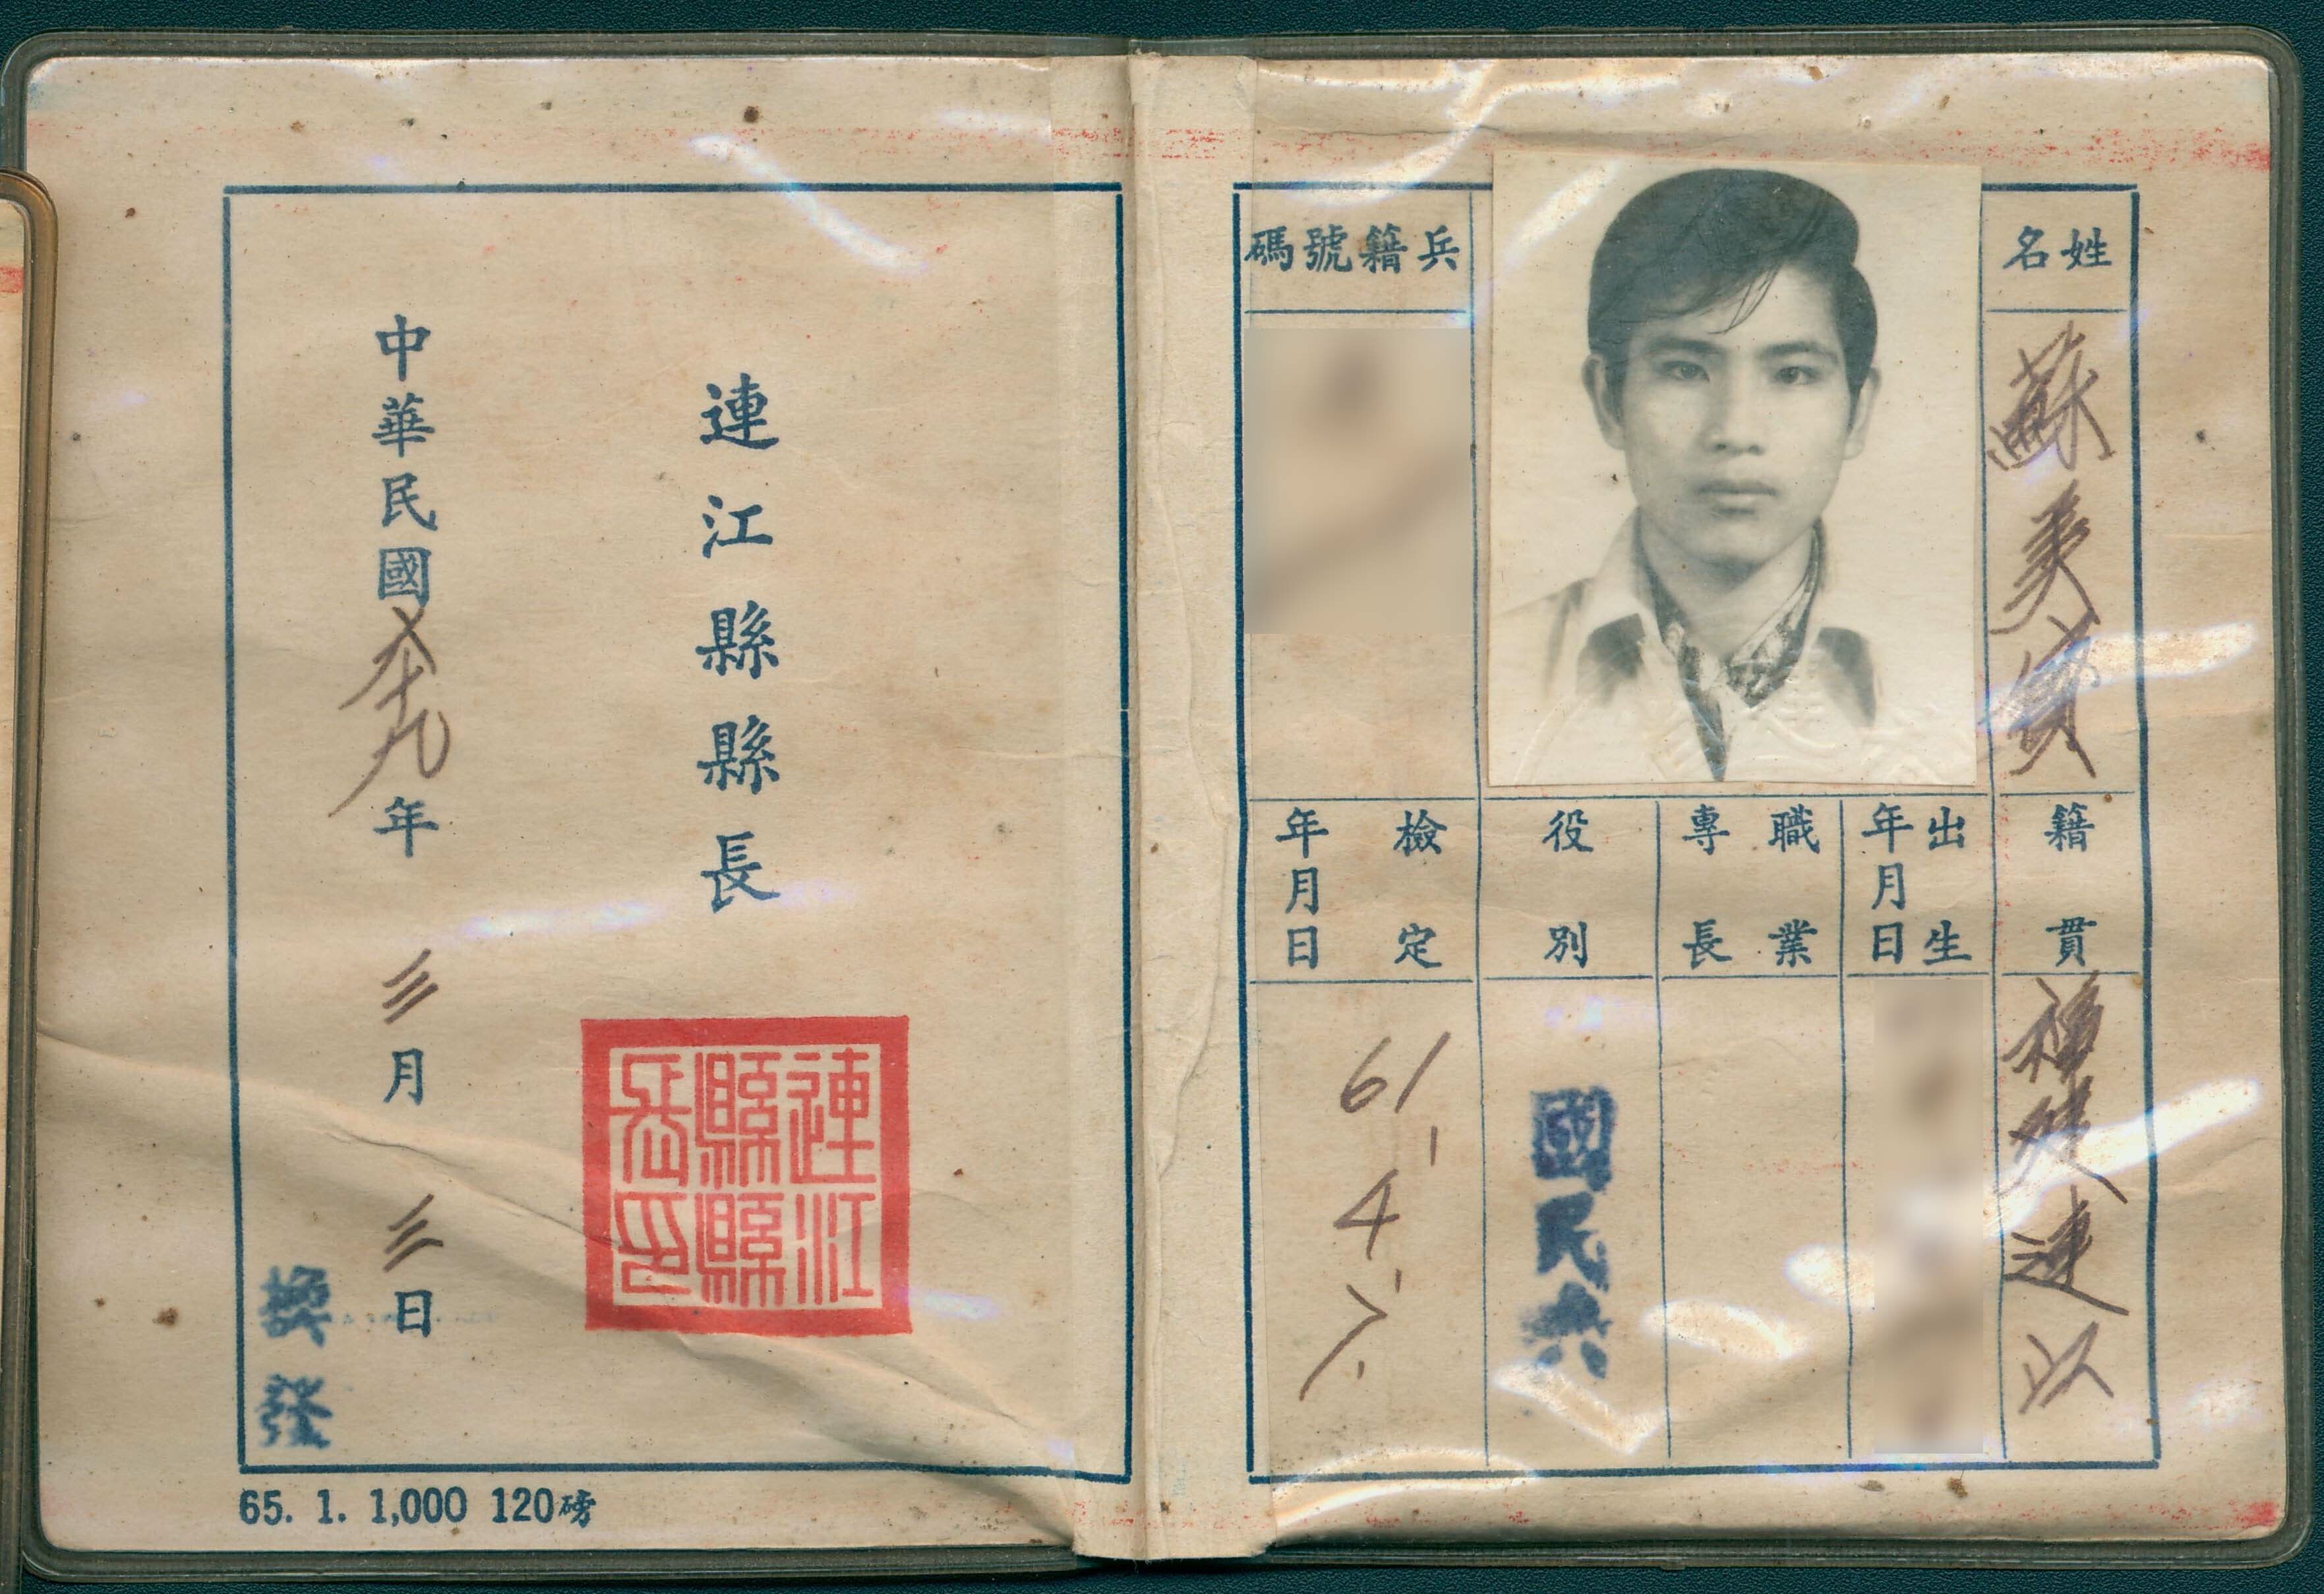 姓名
蘇美
兵籍號碼
籍貫
福建連江
出生
年月日
職業
專長
役別
國民兵
檢定
年月日
61.4.7.
連江縣縣長
連江縣縣長印
中華民國六十九年三月三日
換發
65. 1. 1,000 120磅